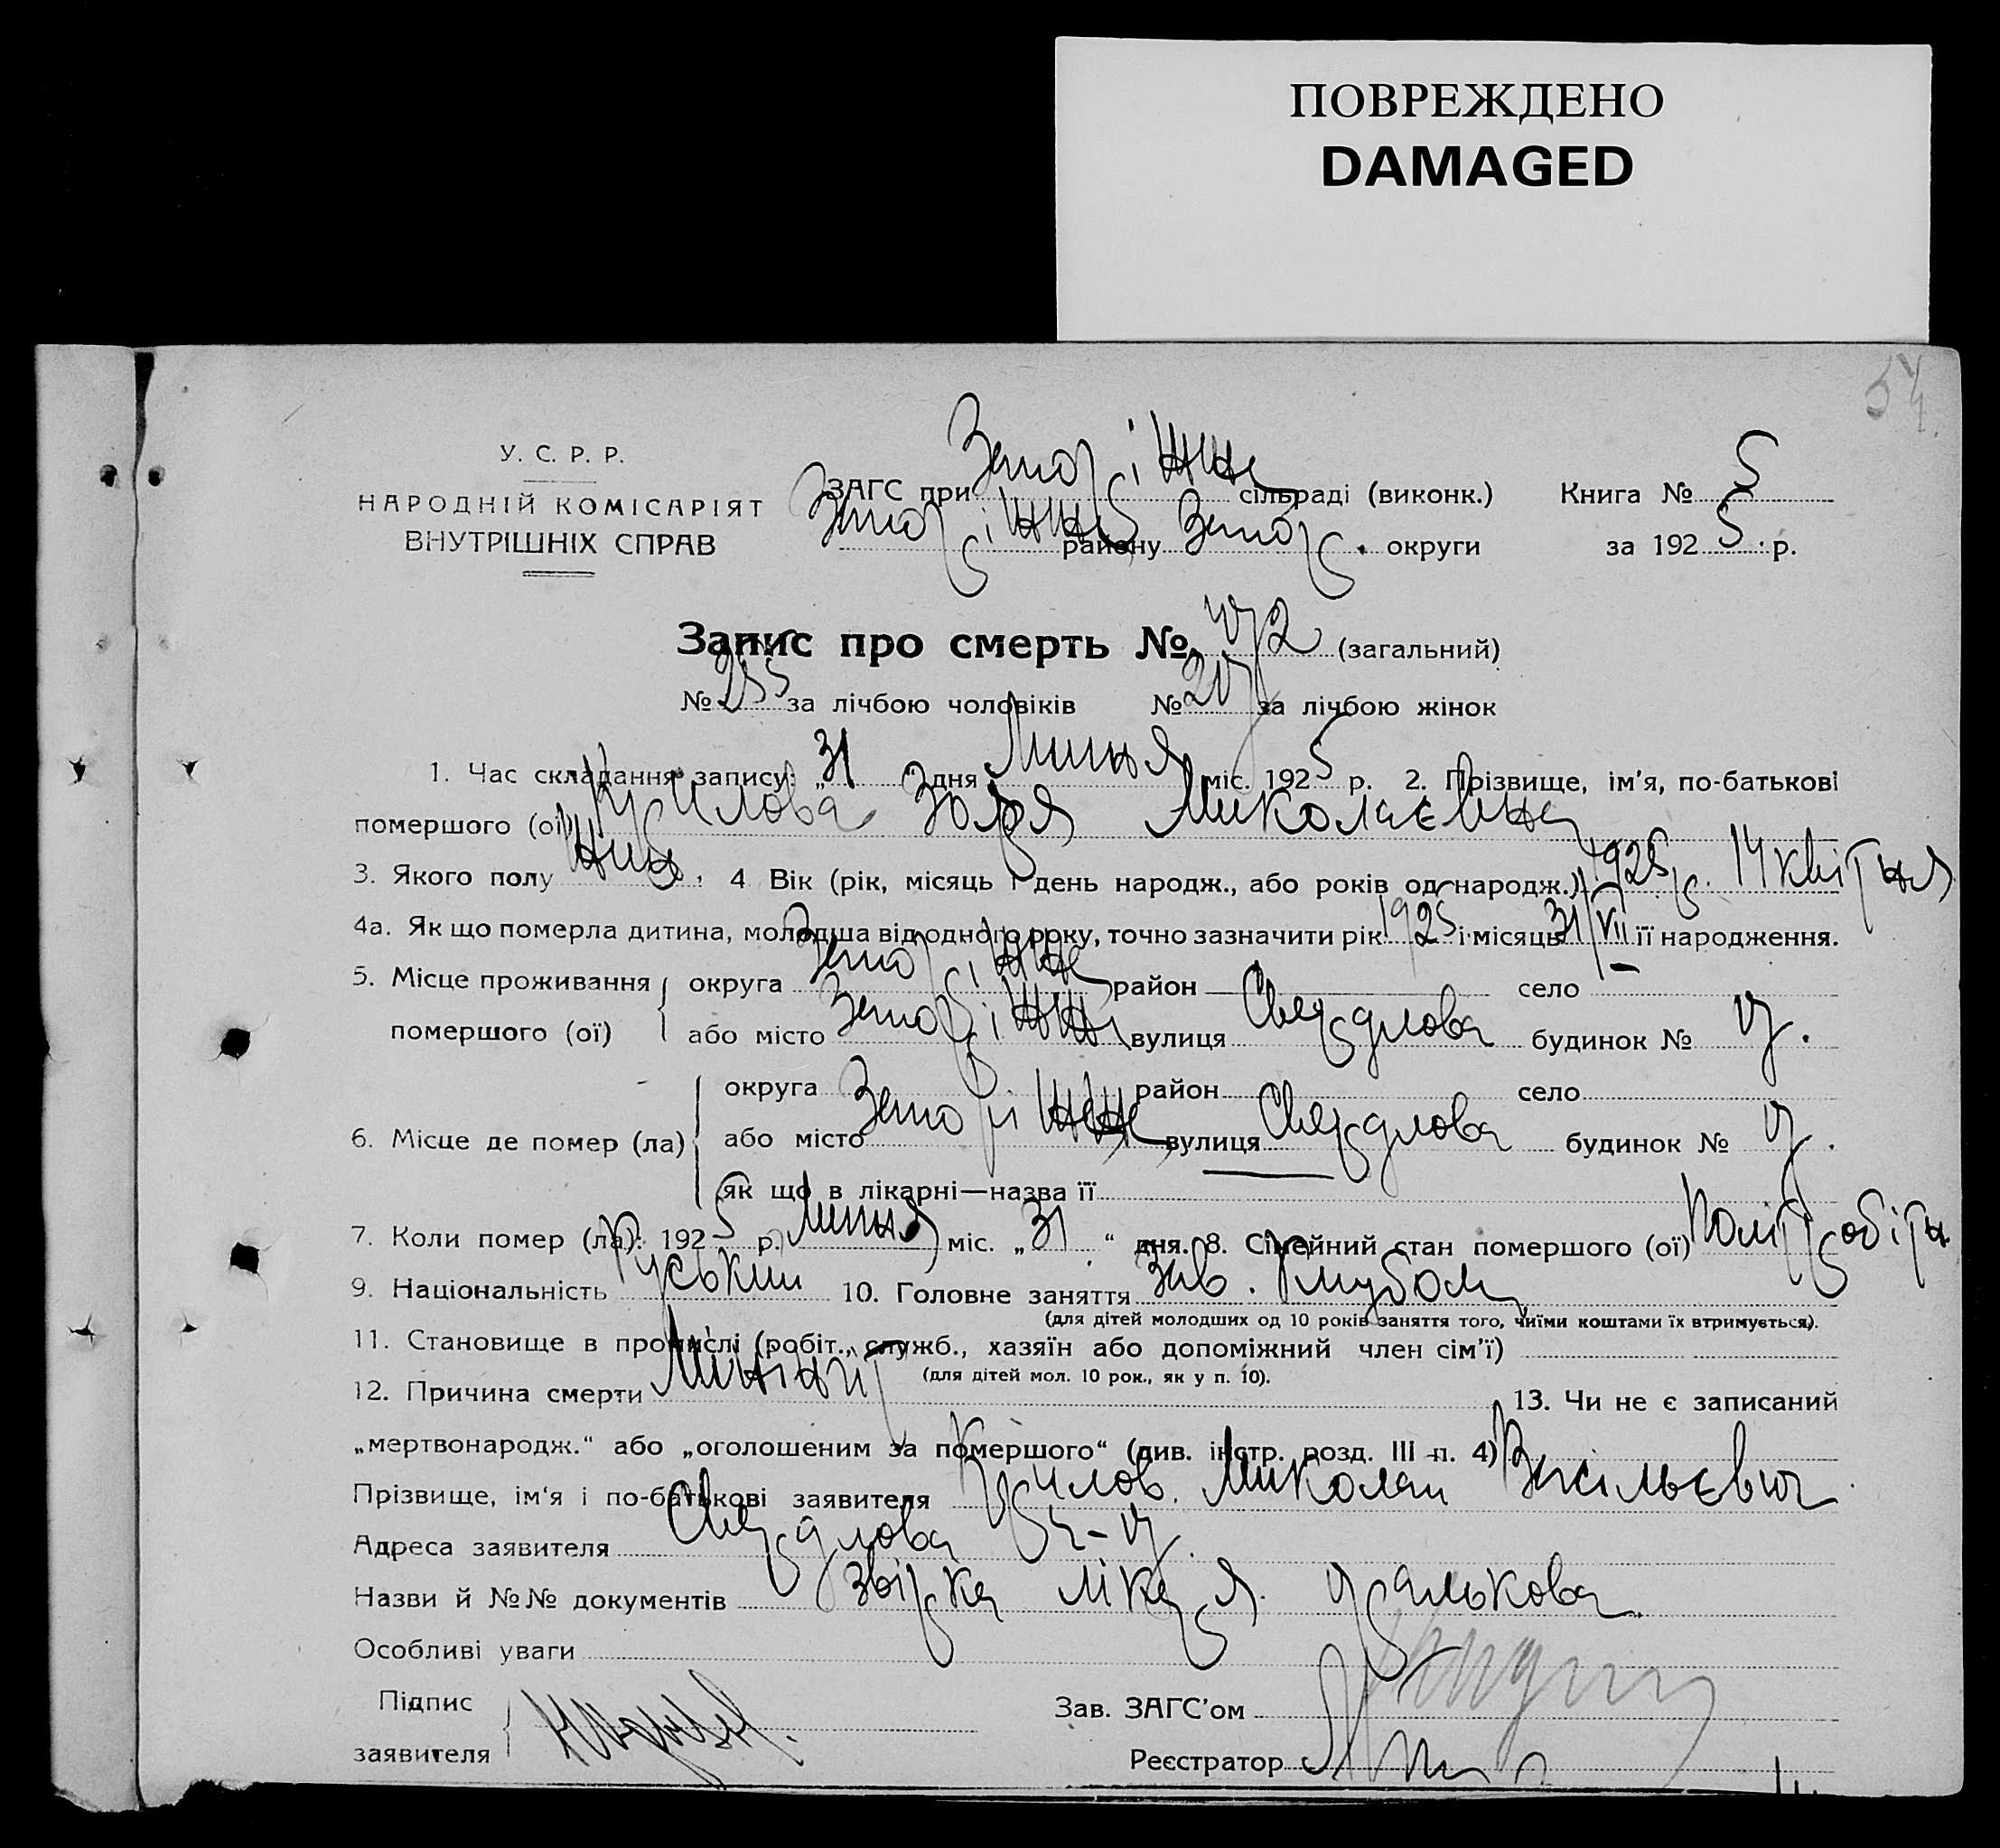 ПОВРЕЖДЕНО
DAMAGED
54
У. С. Р. Р.
НАРОДНІЙ КОМІСАРІЯТ
ВНУТРІШНІХ СПРАВ
ЗАГС при Запоріжже сільраді (виконк.) Книга № 5
Запоріжже району Запор. округи за 1925 р.
Запис про смерть № 472 (загальний)
№ 255 за лічбою чоловіків № 217 за лічбою жінок
1. Час складання запису: „31“ дня Липня міс. 1925 р. 2. Прізвище, ім'я, по-батькові
помершого (ої) Курилова Зоря Миколаєвна
3. Якого полу 4 Вік (рік, місяць і день народж., або років од народж.) 1925 р. 14 квітня
4а. Як що померла дитина, молодша від одного року, точно зазначити рік 1925 і місяць 31/VII її народження.
5. Місце проживання округа Запоріжже район село
помершого (ої) або місто Запоріжже вулиця Свердлова будинок №
округа район село
6. Місце де помер (ла) або місто Запоріжже вулиця Свердлова будинок №
як що в лікарні—назва її
7. Коли помер (ла): 1925 р. Липня міс. „31“ дня. 8. Сімейний стан помершого (ої)
9. Національність Руський 10. Головне заняття Зав. Клубом
(для дітей молодших од 10 років заняття того, чиїми коштами їх втримується).
11. Становище в промислі (робіт., служб., хазяїн або допоміжний член сім'ї)
(для дітей мол. 10 рок., як у п. 10).
12. Причина смерти Минінгіт 13. Чи не є записаний
„мертвонародж.“ або „оголошеним за помершого“ (див. інстр. розд. III п. 4)
Прізвище, ім'я і по-батькові заявителя Курилов Миколай Васільєвич
Адреса заявителя Свердлова
Назви й №№ документів Звірка лікаря
Особливі уваги
Підпис
заявителя
Зав. ЗАГС'ом
Реєстратор